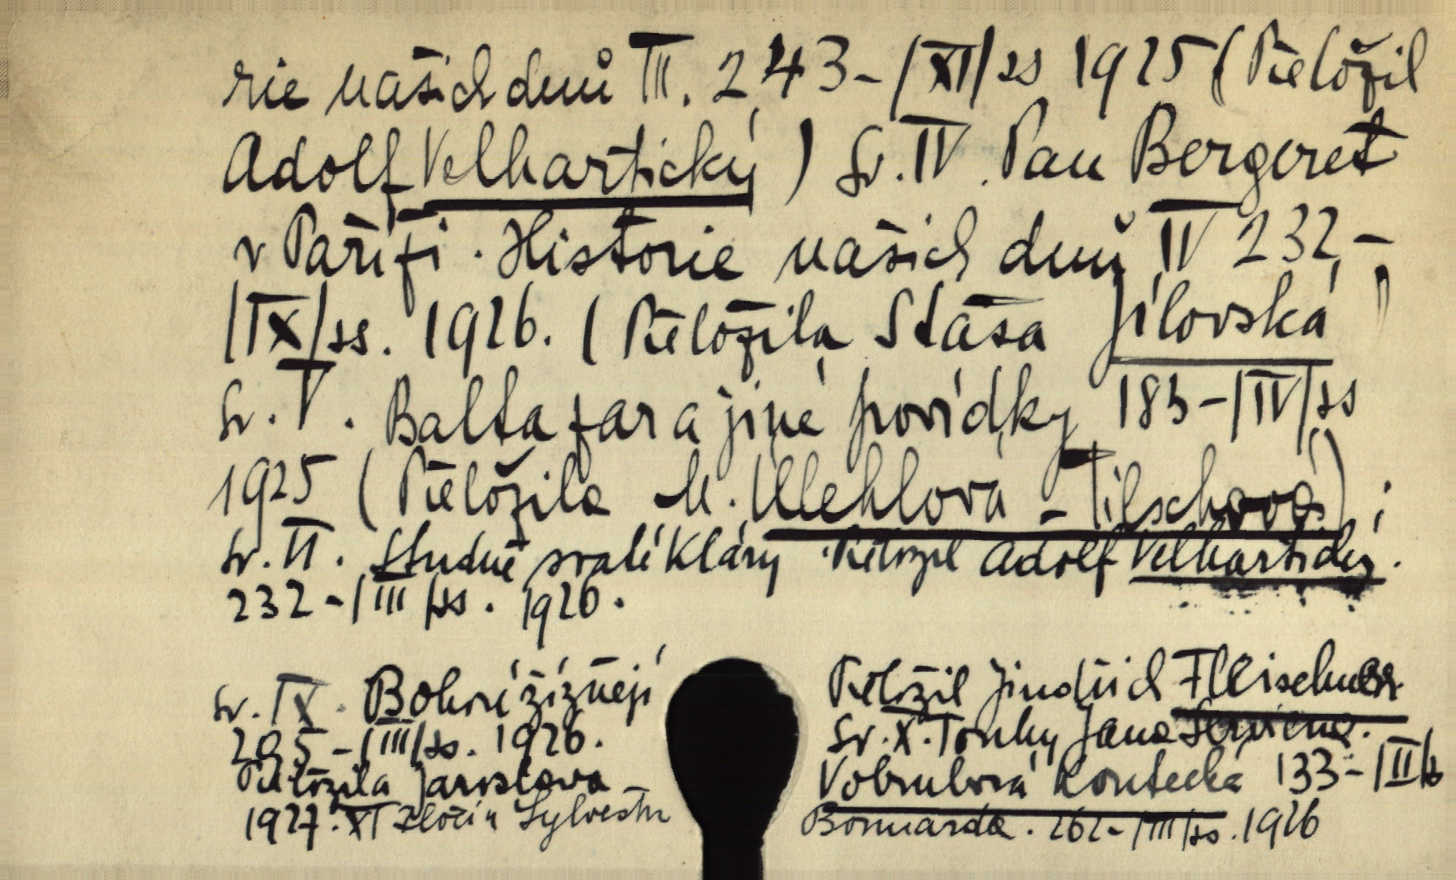 rie našich dnů III. 243-/XI/ss 1925 (Přeložil
Adolf Velhartický) Sv. IV. Pan Bergeret
v Paříži. Historie našich dnů IV 232-
/IX/ss. 1926. (Přeložila Staša Jílovská)
Sv. V. Baltazar a jiné povídky 183-/IV/ss
1925 (Přeložila M. Uhlehlová-Tilschová);
Sv. VI. Studně svaté Kláry. Přeložil Adolf Velhartický.
232-/III/ss. 1926.
Sv. IX. Bohové žíznějí
295-/III/ss. 1926.
Přeložila Jaroslava
1927. XI Zločin Sylvestra
Přeložil Jindřich Fleischner
Sv. X. Touhy Jana Serviena.
Vobrubová Koutecká 133-/II/s
Bonnarda. 262-/III/ss. 1926